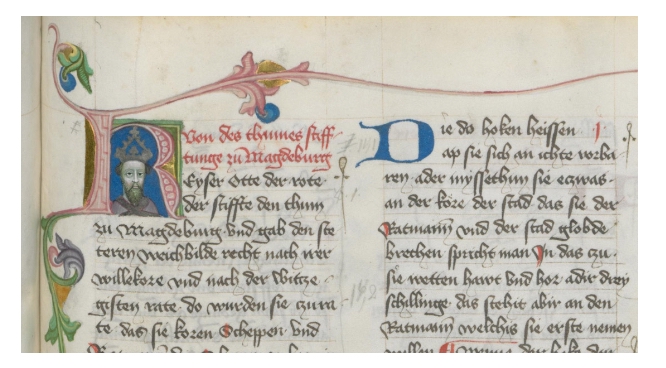 Von des thumes stiff-
tunge zu Magdeburg
Keyser Otte der rote
der stiffte den thum
zu Magdeburg vnd gab den ste
teren weichbilde recht nach irer
willekore vnd nach der witze
gesten rate do wurden sie zu ra
te das sie koren Scheppen vnd
Die do hoken heissen
ap sie sich an ichte vorba
ren ader myssethun sie etzwas
an der kore der stad das sie der
Ratmann vnd der stad globde
brechen spricht man In das czu
sie wetten hawt vnd hor adir drey
schillinge das stehit abir an den
Ratmann welchis sie erste nemen
wellen